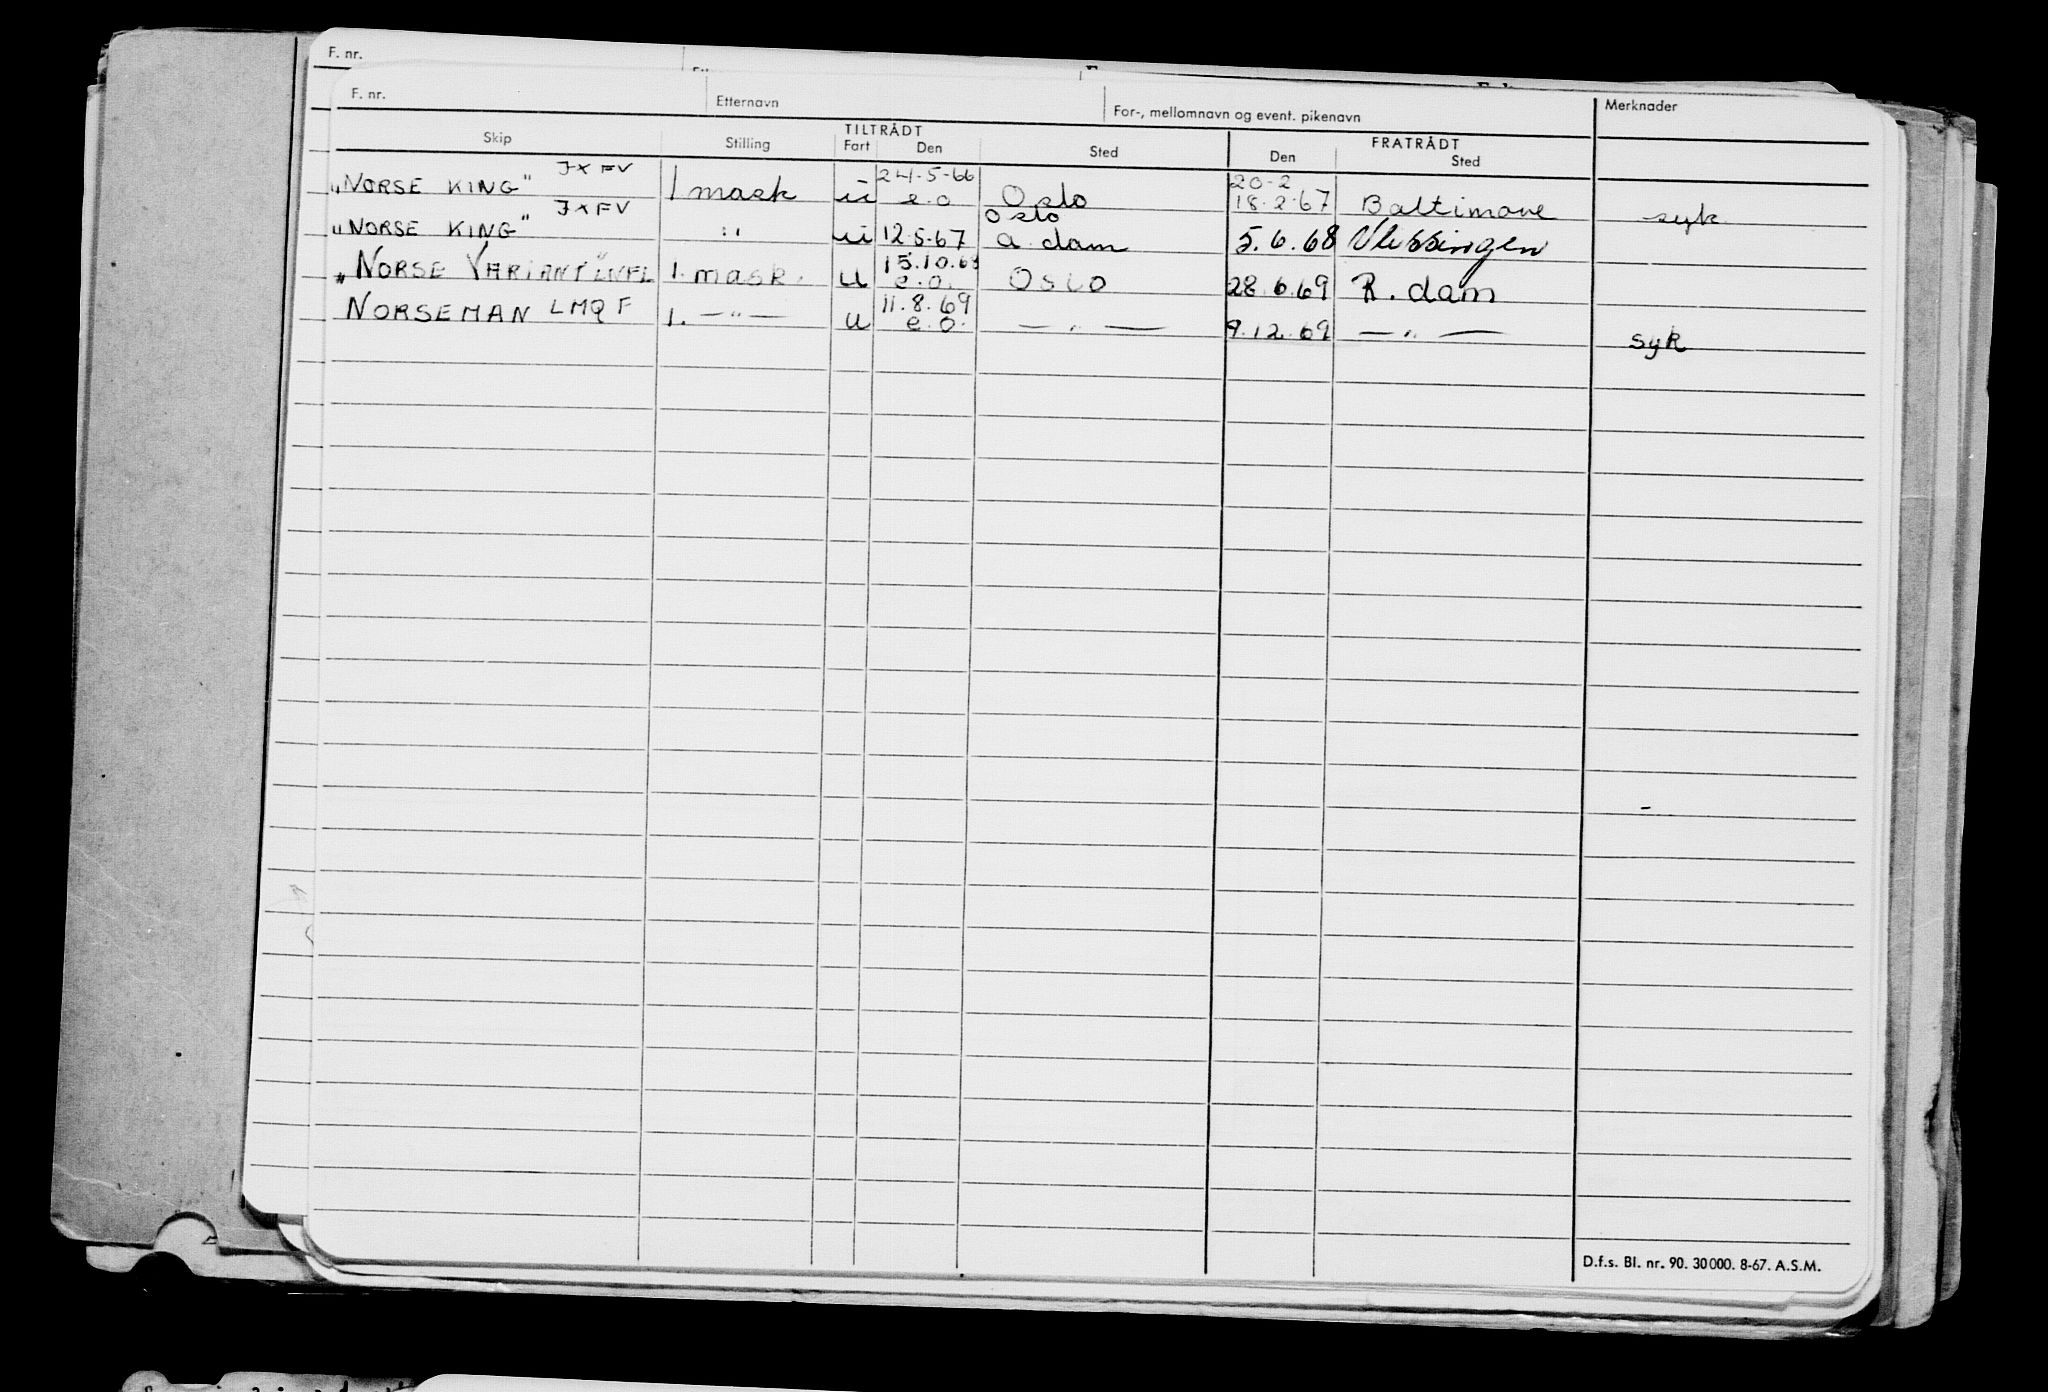 F. nr.
F. nr. Etternavn For-, mellomnavn og event. pikenavn Merknader
TILTRÅDT FRATRÅDT
Skip Stilling Fart Den Sted Den Sted
24-5-66 20-2
"NORSE KING" JXFV 1 mask u e.o Oslo 18.2.67 Baltimore syk
Oslo
"NORSE KING" JXFV " u 12.5.67 a. dam 5.6.68 Vlissingen
15.10.68
"NORSE VARIANT" 1. mask. u e.o. Oslo 28.6.69 R. dam
11.8.69
NORSEMAN LMQF 1. —"— u e.o. —"— 9.12.69 —"— syk
D.f.s. Bl. nr. 90. 30000. 8-67. A.S.M.